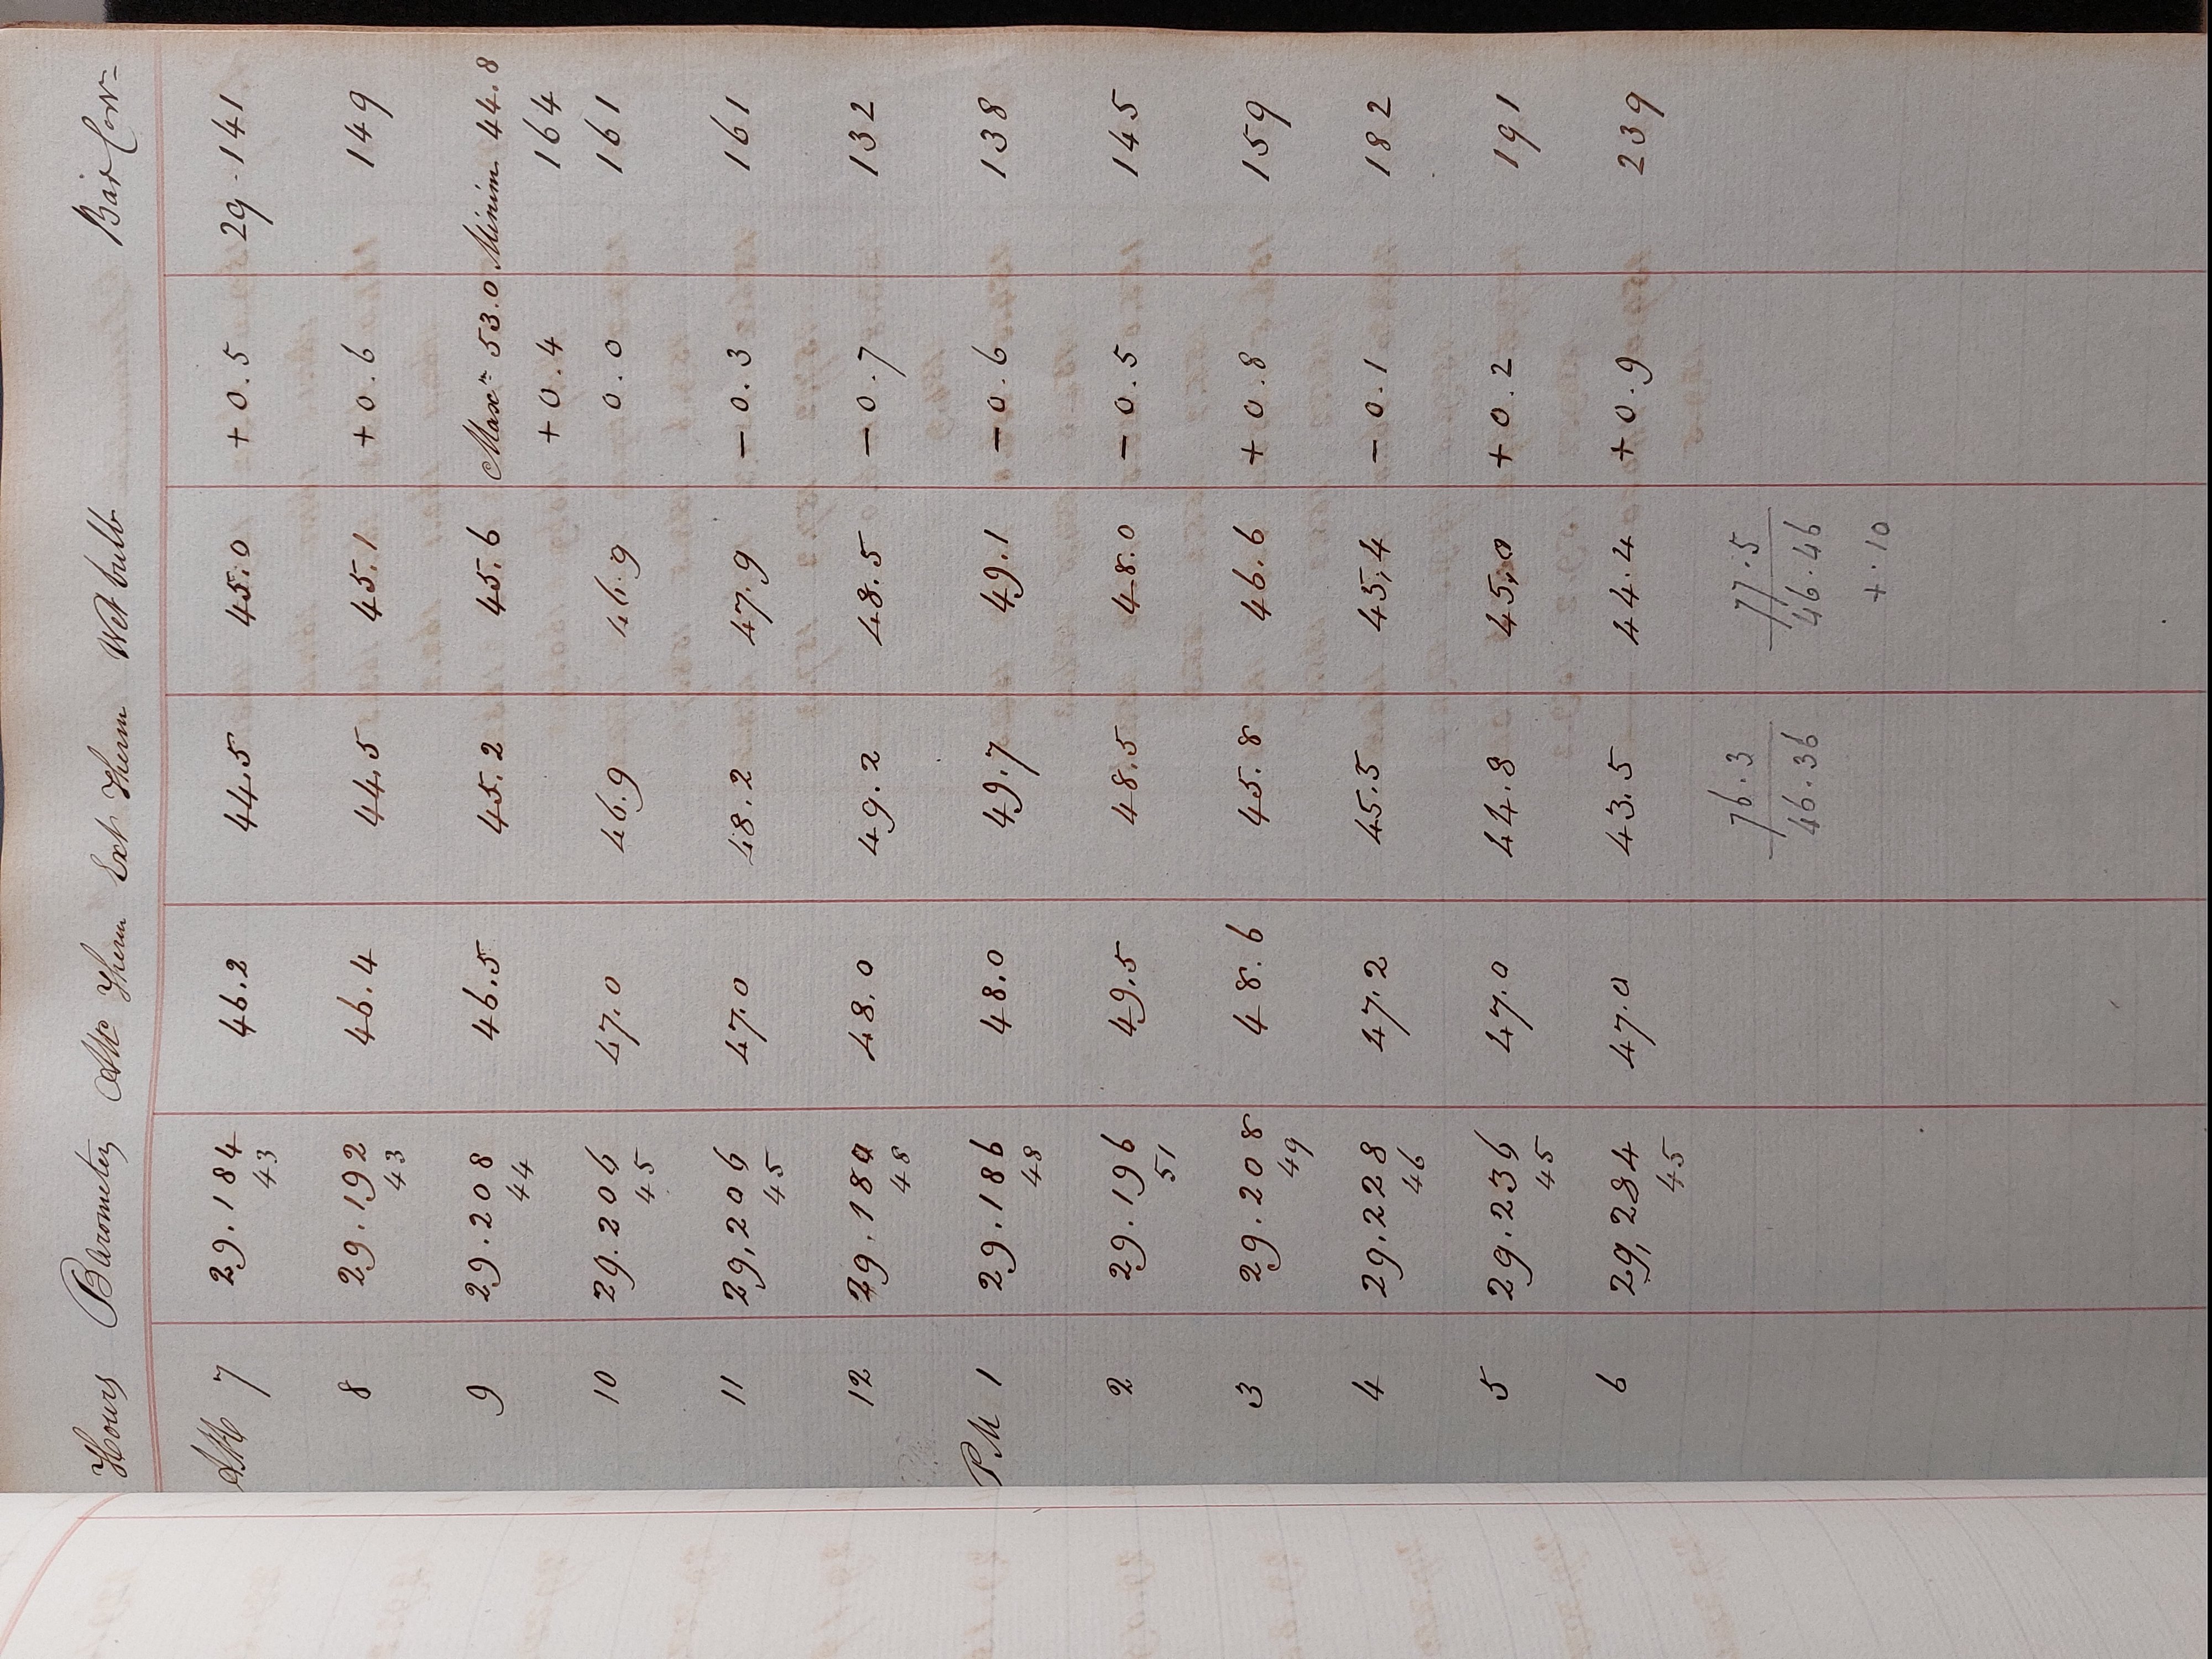 Hours Barometer Att Therm Ext Therm Wet bulb Bar Corr
AM 7 29.184 46.2 44.5 45.0 +0.5 29.141
43
8 29.192 46.4 44.5 45.1 +0.6 149
43
9 29.208 46.5 45.2 45.6 Maxm 53.0 Minim 44.8
44 +0.4 164
10 29.206 47.0 46.9 46.9 0.0 161
45
11 29,206 47.0 48.2 47.9 -0.3 161
45
12 29.180 48.0 49.2 48.5 -0.7 132
48
PM 1 29.186 48.0 49.7 49.1 -0.6 138
48
2 29.196 49.5 48.5 48.0 -0.5 145
51
3 29.208 48.6 45.8 46.6 +0.8 159
49
4 29.228 47.2 45.5 45,4 -0.1 182
46
5 29.236 47.0 44.8 45,0 +0.2 191
45
6 29,284 47.0 43.5 44.4 +0.9 239
45
76.3 77.5
46.36 46.46
+.10